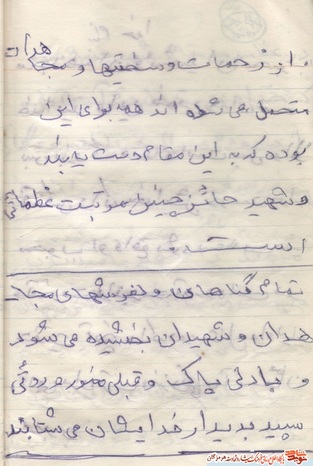 از زحمات و سختیها و مجاهدات
متحمل می شوند همه برای این
بوده که به این مقام دست یابند
و شهید حائز چنین مرتبت عظمائی
است
تمام گناهان و لغزشهای مجا
هدان و شهیدان بخشیده می شوند
و با دلی پاک و قلبی منور و روئی
سپید بدیدار خدایشان می شتابند